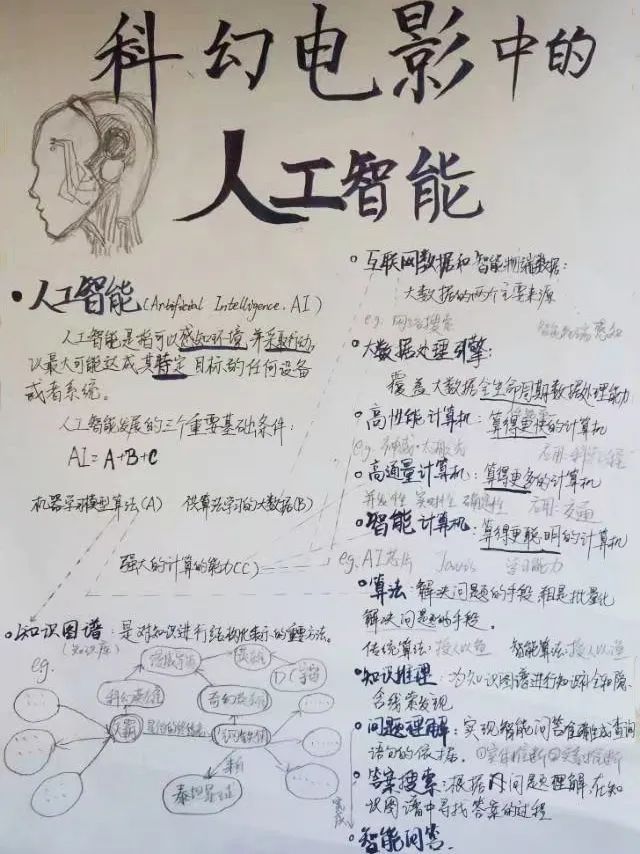 科幻电影中的
人工智能
•人工智能(Artificial Intelligence. AI)
人工智能是指可以感知环境,并采取行动,
以最大可能达成其特定目标的任何设备
或者系统。
人工智能发展的三个重要基础条件:
AI=A+B+C
机器学习模型算法(A) 供算法学习的大数据(B)
强大的计算的能力(C)
•知识图谱:是对知识进行结构化表示的重要方法。
(知识库)
eg.
漫威导演
科幻英雄
奇幻英雄
灭霸
来自
泰坦星球
互联网数据和智能物端数据:
大数据的两个主要来源
eg. 网络搜索 智能终端感知
大数据处理引擎:
覆盖大数据全生命周期数据处理能力
高性能计算机:算得更快的计算机
eg. 神威·太湖之光 应用:科学工程
高通量计算机:算得更多的计算机
并发性 实时性 确定性 应用:交通
智能计算机:算得更聪明的计算机
eg. AI芯片 Jarvis 学习能力
算法:解决问题的手段,粗是批量化
解决问题的手段。
传统算法:授人以鱼 智能算法:授人以渔
知识推理:为知识图谱进行知识补全和隐
含线索发现
问题理解:实现智能问答准确生成查询
语句的依据。
答案搜索:根据对问题理解,在知
识图谱中寻找答案的过程
完成
智能问答.